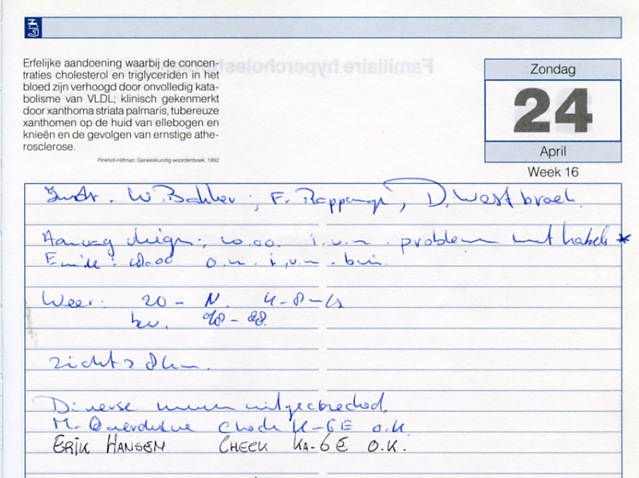 Erfelijke aandoening waarbij de concen-
traties cholesterol en triglyceriden in het
bloed zijn verhoogd door onvolledig kata-
bolisme van VLDL; klinisch gekenmerkt
door xanthoma striata palmaris, tubereuze
xanthomen op de huid van ellebogen en
knieën en de gevolgen van ernstige athe-
rosclerose.
Pinkhof-Hilfman Geneeskundig woordenboek, 1992
Zondag
24
April
Week 16
Instr. W. Bakker; F. Rappange, D. Westbroek.
Aanvang vliegen: 10.00 i.v.m. problemen met kabels *
Einde: 18.00 o.m. i.v.m.
Weer: 20 - N. 4-8-
bew.
Zicht > 8 km.
Diverse mensen uitgechecked.
M. Check K-6E O.K.
ERIK HANSEN CHECK KA-6E O.K.